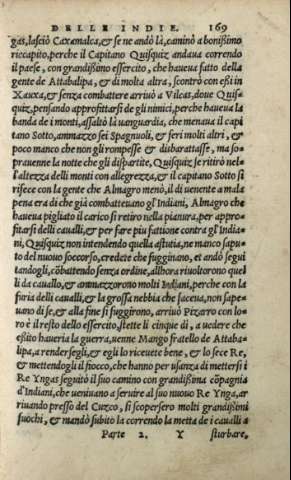 DELLE INDIE. 169
gas, lasciò Caxamalca, & se ne andò là, caminò a bonissimo
riccapito, perche il Capitano Quisquiz andaua correndo
il paese, con grandissimo essercito, che haueua fatto della
gente de Attabalipa, & di molta altra, scontrò con essi in
Xauxa, & senza combattere arriuò a Vilcas, doue Quis-
quiz, pensando approfittarsi de gli nimici, perche haueua la
banda de i monti, assaltò la vanguardia, che menaua il capi
tano Sotto, ammazzo sei Spagnuoli, & ferì molti altri, &
poco manco che non gli rompesse & disbarattasse, ma so-
prauenne la notte che gli dispartite, Quisquiz se ritirò nel-
l'altezza delli monti con allegrezza, & il capitano Sotto si
rifece con la gente che Almagro menò, il dì uenente a mala
pena era dì che già combatteuano gl'Indiani, Almagro che
haueua pigliato il carico si retiro nella pianura, per appro-
fitarsi delli caualli, & per fare piu fattione contra gl'India-
ni, Quisquiz non intendendo quella astutia, ne manco sapu-
to del nuouo soccorso, credete che fuggiuano, et andò segui
tandogli, cōbattendo senza ordine, allhora riuoltorono quel
li da cauallo, & ammazzorono molti Indiani, perche con la
furia delli caualli, & la grossa nebbia che faceua, non sape-
uano di se, & alla fine si fuggirono, arriuò Pizarro con lo-
ro & il resto dello essercito, stette lì cinque dì, a uedere che
essito haueria la guerra, uenne Mango fratello de Attaba-
lipa, a rendersegli, & egli lo riceuette bene, & lo fece Re,
& mettendogli il fiocco, che hanno per usanza di mettersi i
Re Yngas seguitò il suo camino con grandissima cōpagnia
d'Indiani, che ueniuano a seruire al suo nuouo Re Ynga, ar
riuando presso del Cuzco, si scopersero molti grandissimi
fuochi, & mandò subito la correndo la metta de i caualli a
Parte 2. Y sturbare,